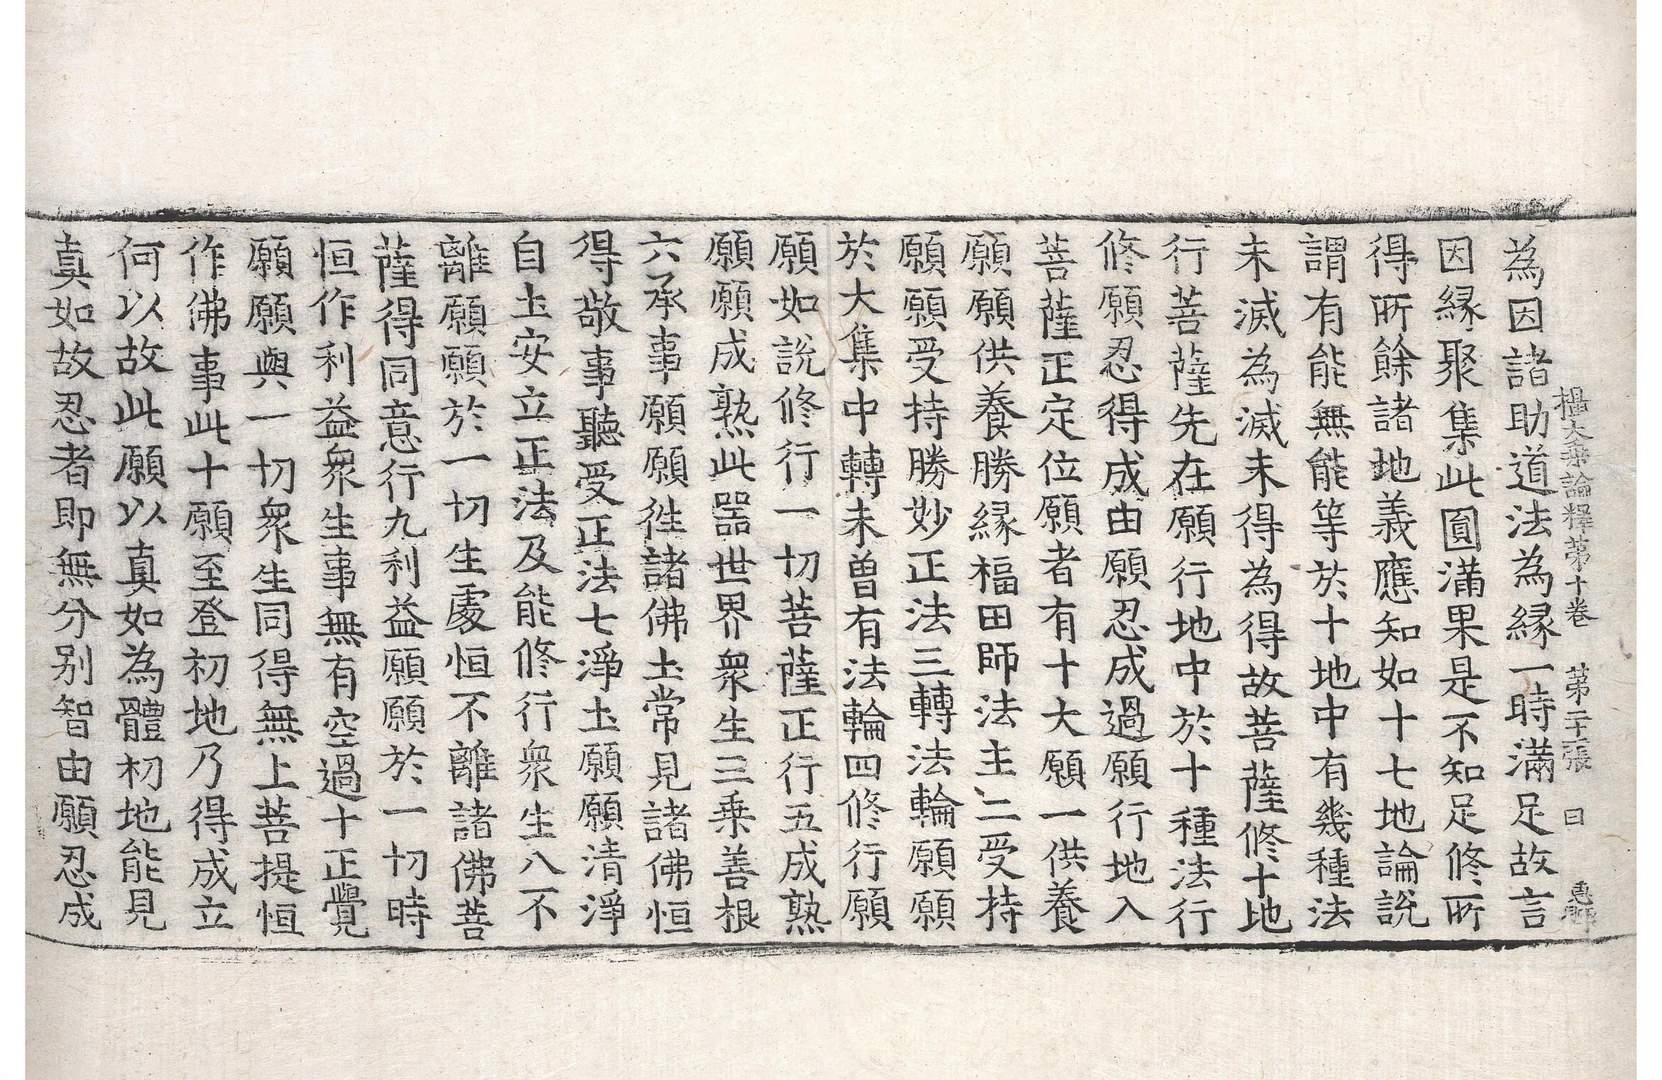 攝大乘論釋第十卷　第二十張　曰
為因諸助道法為緣一時滿足故言
因緣聚集此圓滿果是不知足修所
得所餘諸地義應知如十七地論說
謂有能無能等於十地中有幾種法
未滅為滅未得為得故菩薩修十地
行菩薩先在願行地中於十種法行
修願忍得成由願忍成過願行地入
菩薩正定位願者有十大願一供養
願願供養勝緣福田師法主二受持
願願受持勝妙正法三轉法輪願願
於大集中轉未曾有法輪四修行願
願如說修行一切菩薩正行五成熟
願願成熟此器世界衆生三乘善根
六承事願願往諸佛土常見諸佛恒
得敬事聽受正法七淨土願願清淨
自土安立正法及能修行衆生八不
離願願於一切生處恒不離諸佛菩
薩得同意行九利益願願於一切時
恒作利益衆生事無有空過十正覺
願願與一切衆生同得無上菩提恒
作佛事此十願至登初地乃得成立
何以故此願以真如為體初地能見
真如故忍者即無分別智由願忍成